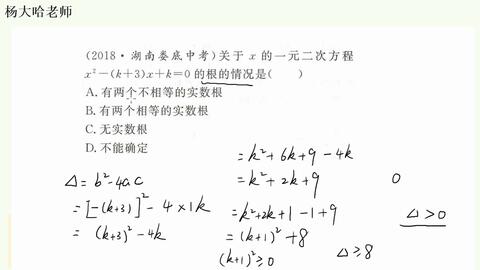 杨大哈老师
(2018·湖南娄底中考)关于 x 的一元二次方程
x²-(k+3)x+k=0 的根的情况是(   )
A.有两个不相等的实数根
B.有两个相等的实数根
C.无实数根
D.不能确定
Δ=b²-4ac
=[-(k+3)]²-4×1k
=(k+3)²-4k
=k²+6k+9-4k
=k²+2k+9
=k²+2k+1-1+9
=(k+1)²+8
(k+1)²≥0
Δ≥8
0
Δ>0